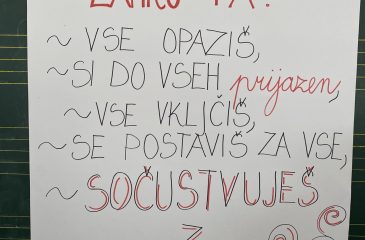 ~ VSE OPAZIŠ,
~ SI DO VSEH prijazen,
~ VSE VKLJČIŠ,
~ SE POSTAVIŠ ZA VSE,
~ SOČUSTVUJEŠ
Z